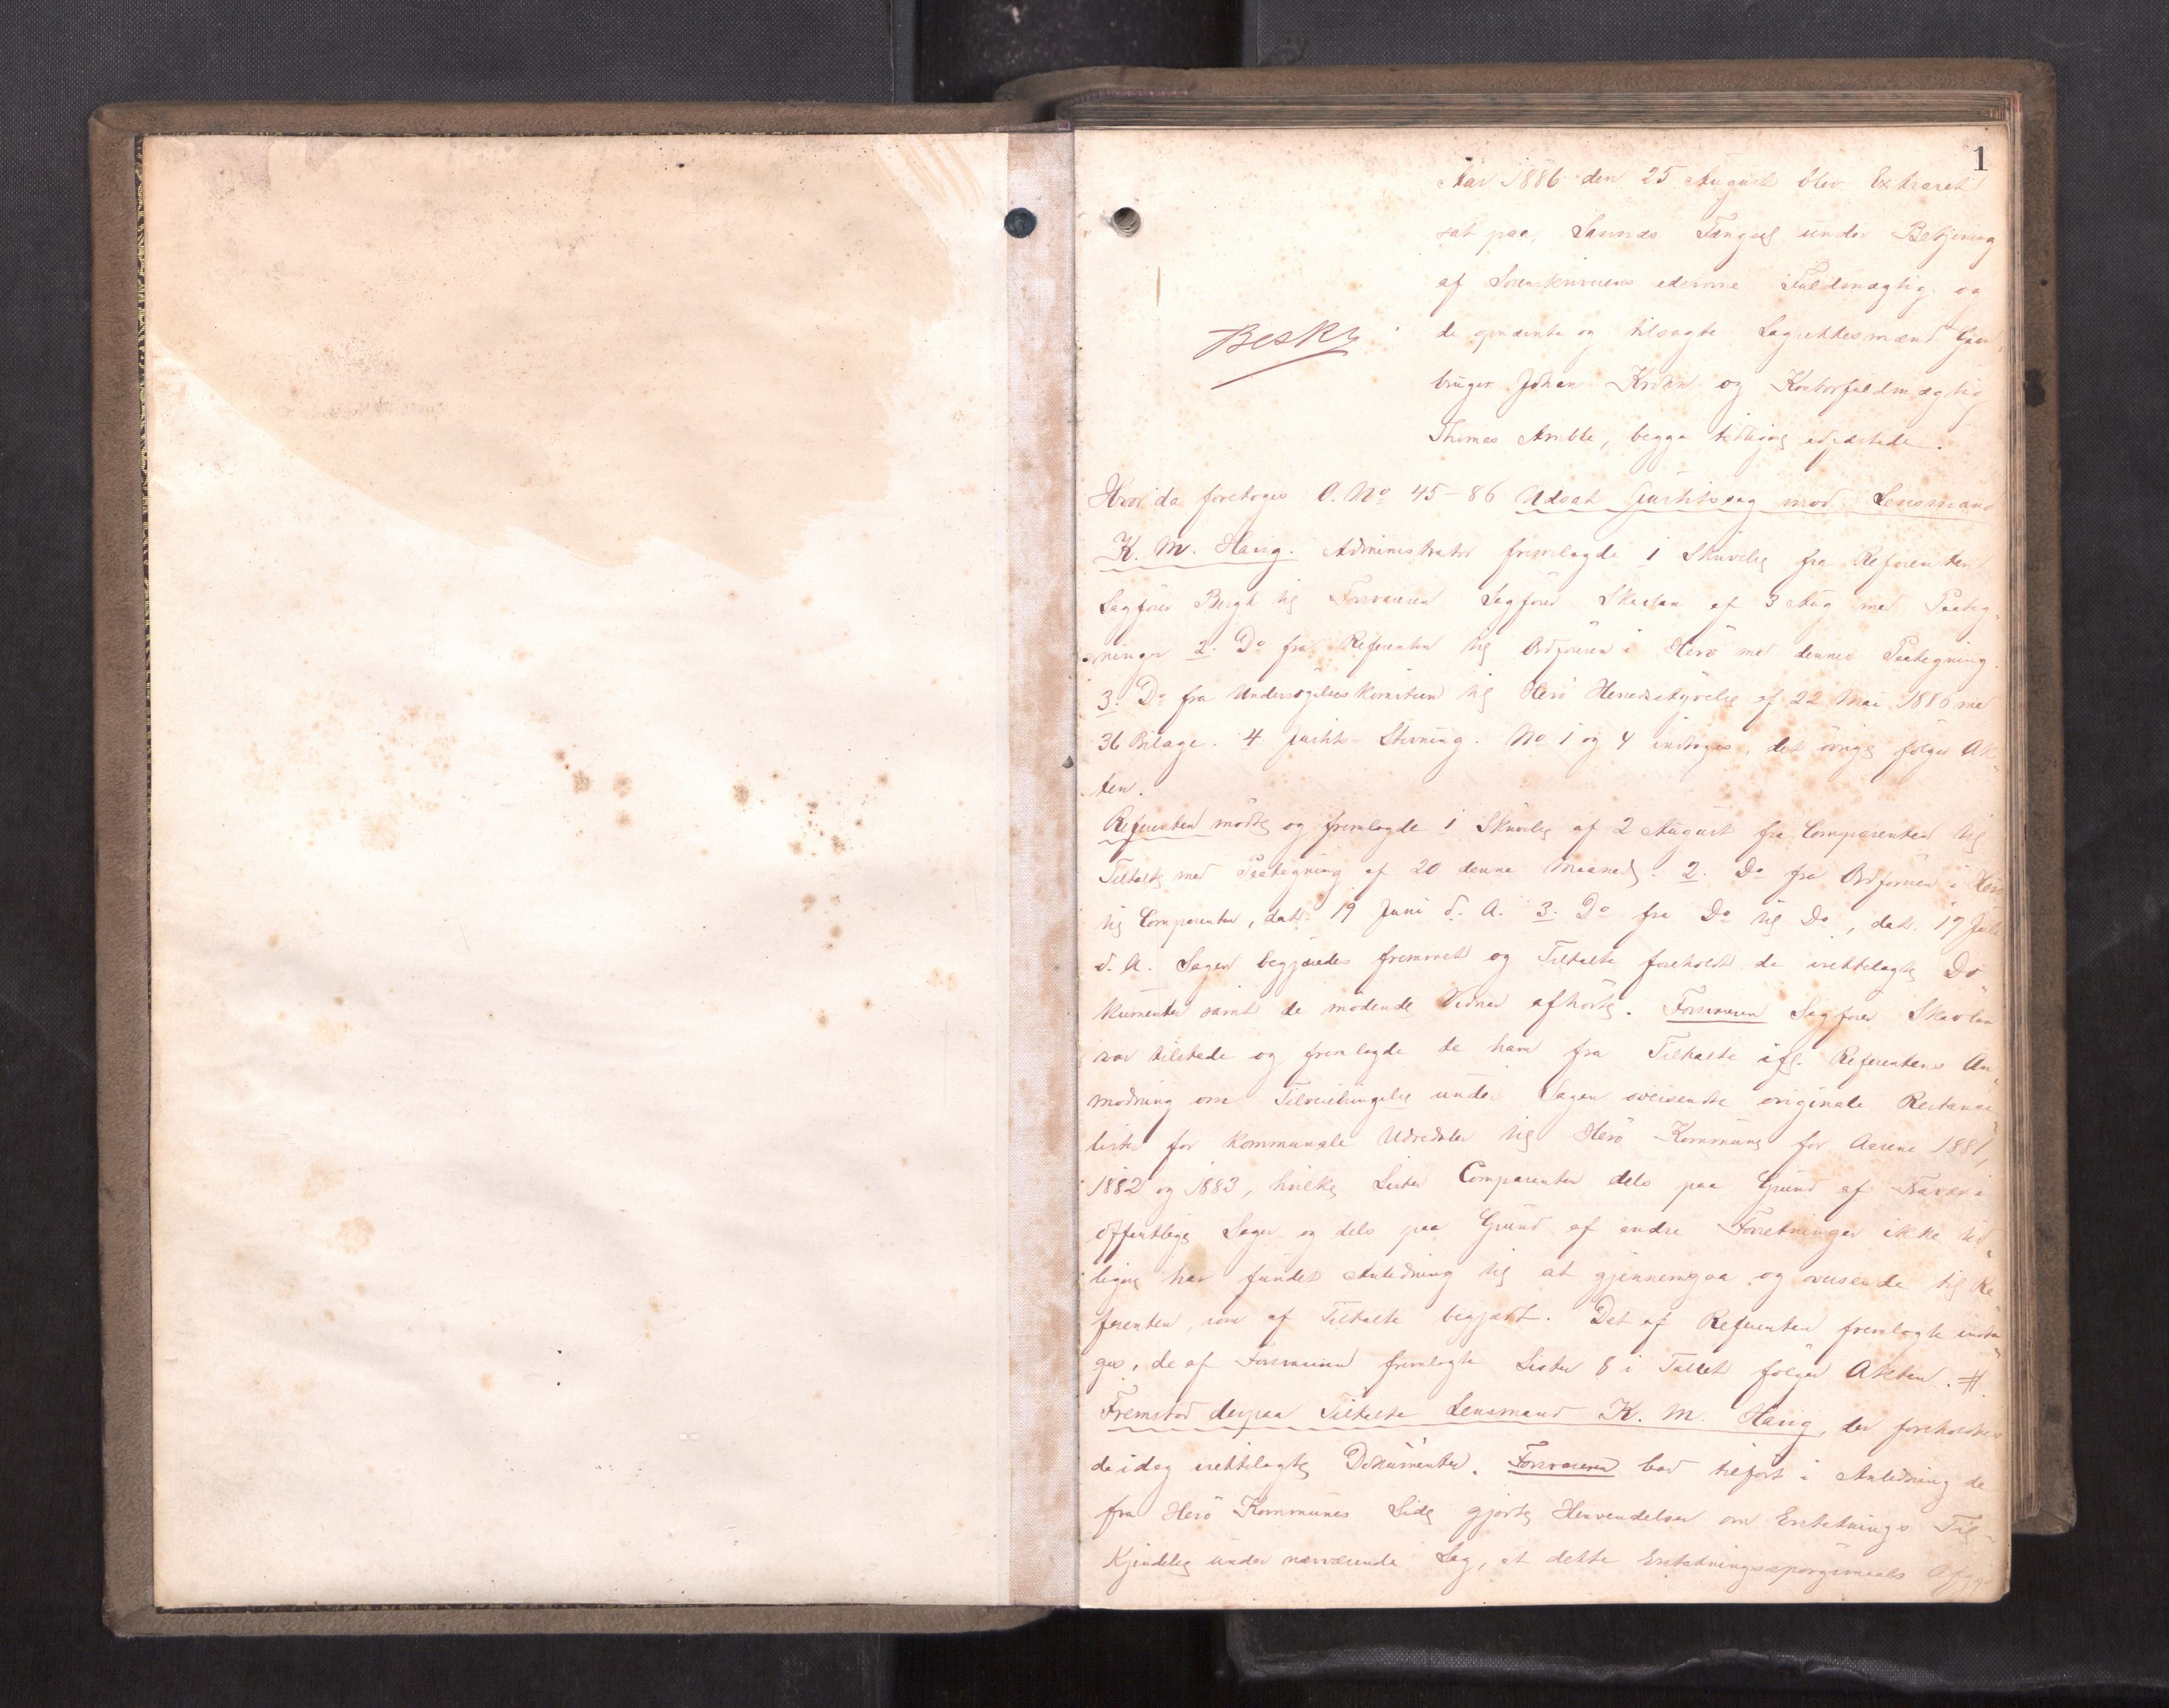 1
Aar 1886 den 25 August blev Extraret
sat paa Sannæs Fængsel under Betjening
af Sorenskriverens edsvorne Fuldmægtig og
Beskr
de opnævnte og tilsagte Lagrettesmænd Gaar„
bruger Johan Krohn og Kontorfuldmægtig
Thomas Amble, begge tidligere edfæstede.
Hvor da foretoges O. No 45-86 Udsat Justitssag mod Lensmand
K. M. Haug. Administrator fremlagde 1 Skrivelse fra Referenten
Sagfører Bergh til Forsvareren Sagfører Skavlan af 3 Aug med Paateg„
ninger 2. Do fra Referenten til Ordføreren i Herö med dennes Paategning.
3. Do fra Undersøgelseskomiteen til Herö Herredsstyrelse af 22 Mai 1886 med
36 Bilage. 4 Justits-Stevning. No 1 og 4 indtages, det øvrige følger Ak„
ten.
Referenten mødte og fremlagde 1 Skrivelse af 2 August fra Comparenten til
Tiltalte med Paategning af 20 denne Maaned. 2. Do fra Ordføreren i Herö
til Comparenten, dat. 19 Juni d. A. 3. Do fra Do til Do, dat. 17 Juli
d. A. Sagen begjæredes fremmet og Tiltalte foreholdt de irettelagte Do„
kumenter samt de mødende Vidner afhørte. Forsvareren Sagfører Skavlan
var tilstede og fremlagde de ham fra Tiltalte ifl. Referentens An„
modning om Tilveiebringelse under Sagen oversendte originale Restance„
lister for kommunale Udredsler til Herö Kommune for Aarene 1881,
1882 og 1883, hvilke Lister Comparenten dels paa Grund af Fravær i
offentlige Sager og dels paa Grund af andre Forretninger ikke tid„
ligere har fundet Anledning til at gjennemgaa og oversende til Re„
ferenten, som af Tiltalte begjært. Det af Referenten fremlagte indta„
ges, de af Forsvareren fremlagte Lister 8 i Tallet følger Akten. #
Fremstod derpaa Tiltalte Lensmand K. M. Haug, der foreholdtes
de idag irettelagte Dokumenter. Forsvareren bad tilført i Anledning de
fra Herö Kommunes Side gjorte Henvendelser om Erstatnings Til„
kjendelse under nærværende Sag, at dette Erstatningsspørgsmaals